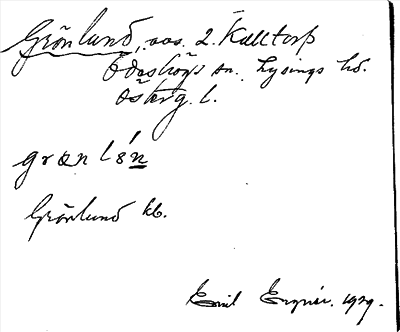 Grönlund, ås. 2. Kalltorp
Ödeshögs sn. Lysings hd.
Österg. l.
grœnlén
Grönlund kb.
Emil 1929.